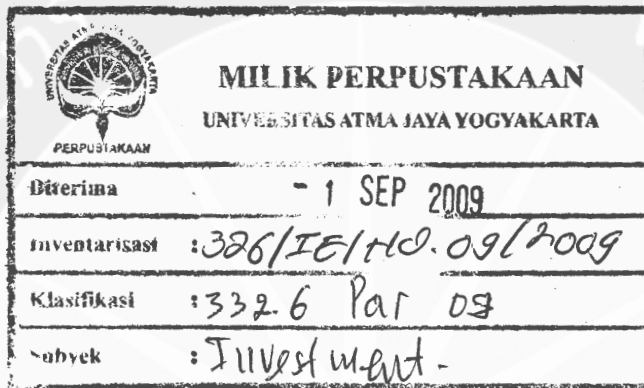 UNIVERSITAS ATMA JAYA YOGYAKARTA
PERPUSTAKAAN
MILIK PERPUSTAKAAN
UNIVERSITAS ATMA JAYA YOGYAKARTA
Diterima - 1 SEP 2009
Inventarisasi : 326/IE/HD.09/2009
Klasifikasi : 332.6 Par 09
Subyek : Investment.